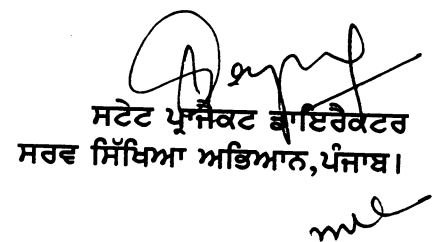 ਸਟੇਟ ਪ੍ਰਾਜੈਕਟ ਡਾਇਰੈਕਟਰ
ਸਰਵ ਸਿੱਖਿਆ ਅਭਿਆਨ,ਪੰਜਾਬ।